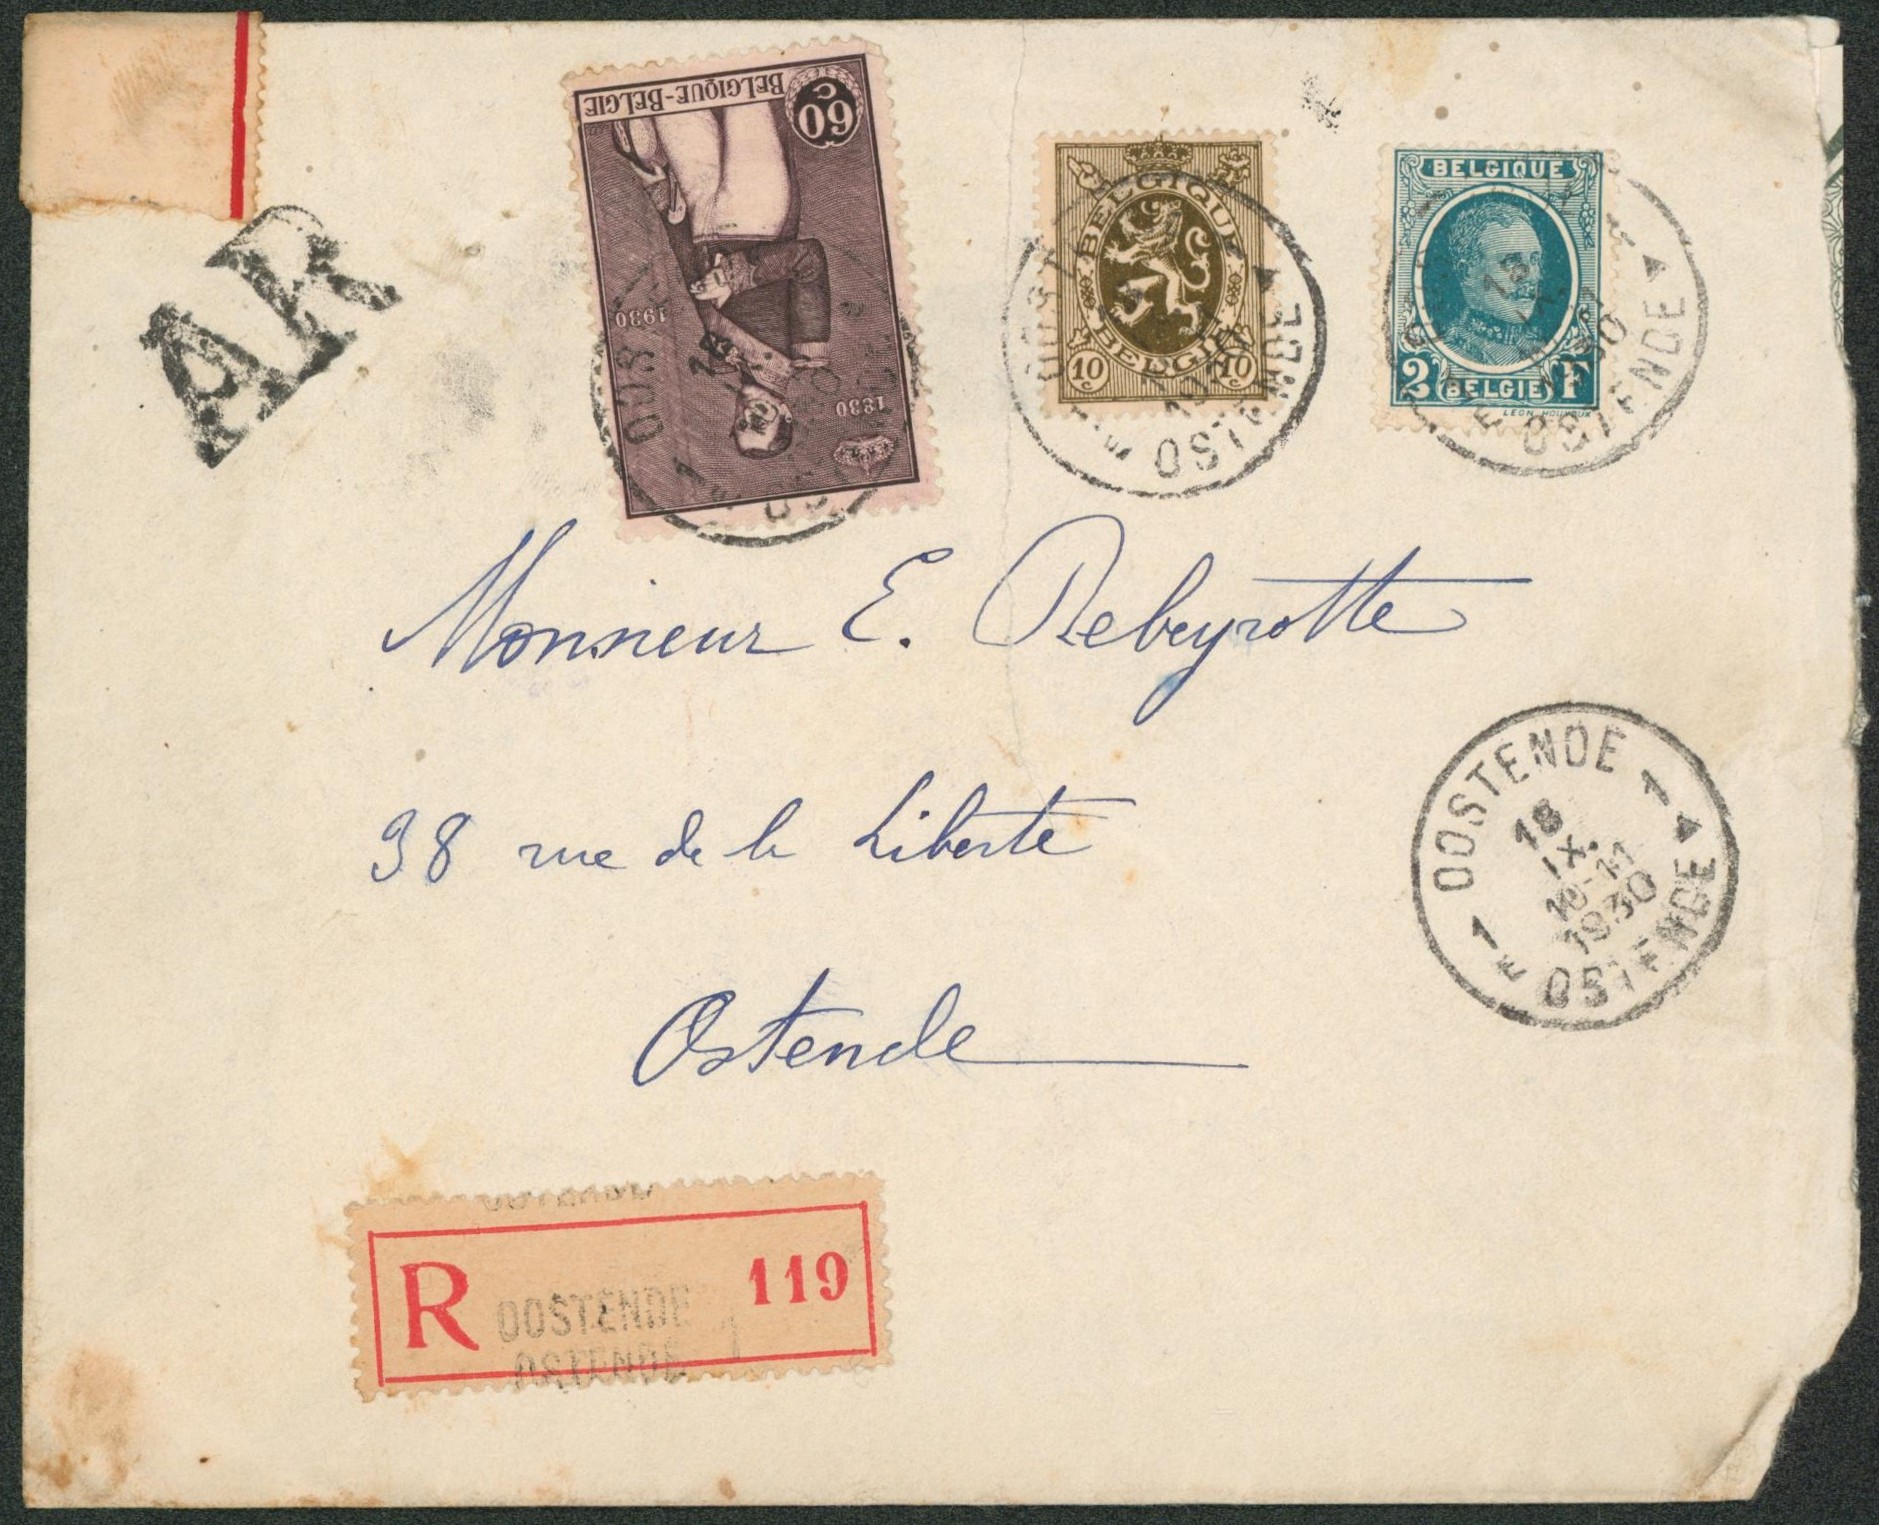 AR
60 c
BELGIQUE-BELGIE
1830 1930
BELGIQUE
BELGIE
10 c 10 c
BELGIQUE
2 BELGIE F
LEON HOUYOUX
Monsieur E. Rebeyrotte
38 rue de la Liberté
Ostende
1 OOSTENDE 1
18
IX.
10-11
1930
E OSTENDE
R 119
OOSTENDE 1
OSTENDE